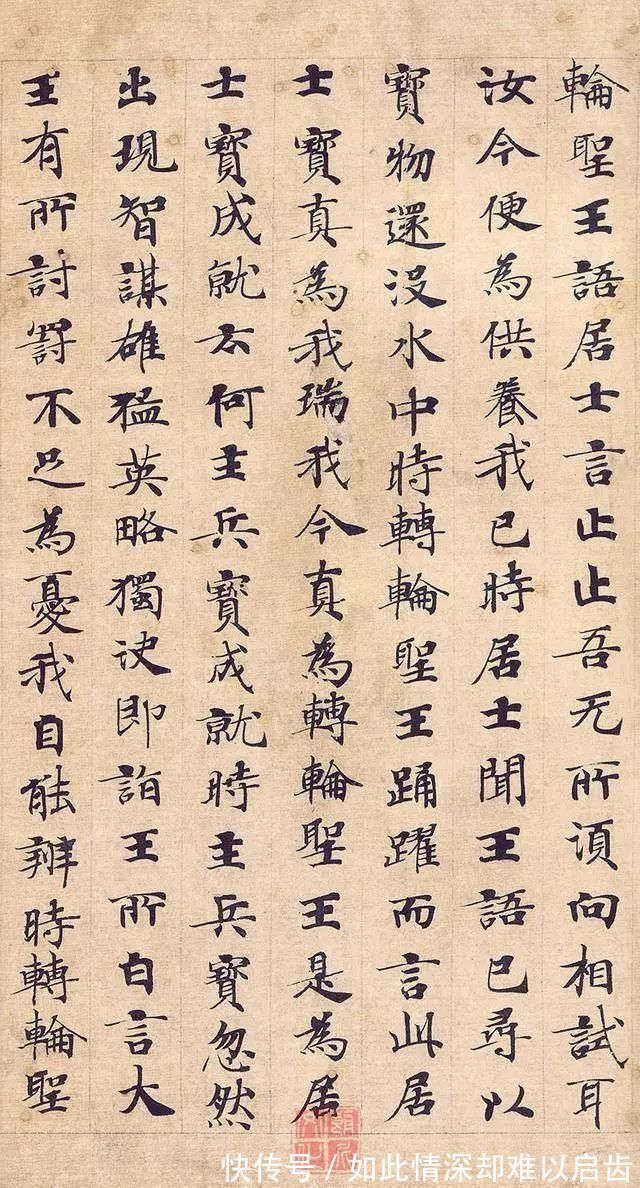 輪聖王語居士言止止吾无所須向相試耳
汝今便為供養我已時居士聞王語已尋以
寶物還沒水中時轉輪聖王踊躍而言此居
士寶真為我瑞我今真為轉輪聖王是為居
士寶成就云何主兵寶成就時主兵寶忽然
出現智謀雄猛英略獨決即詣王所白言大
王有所討罸不足為憂我自能辦時轉輪聖
快传号 / 如此情深却难以启齿